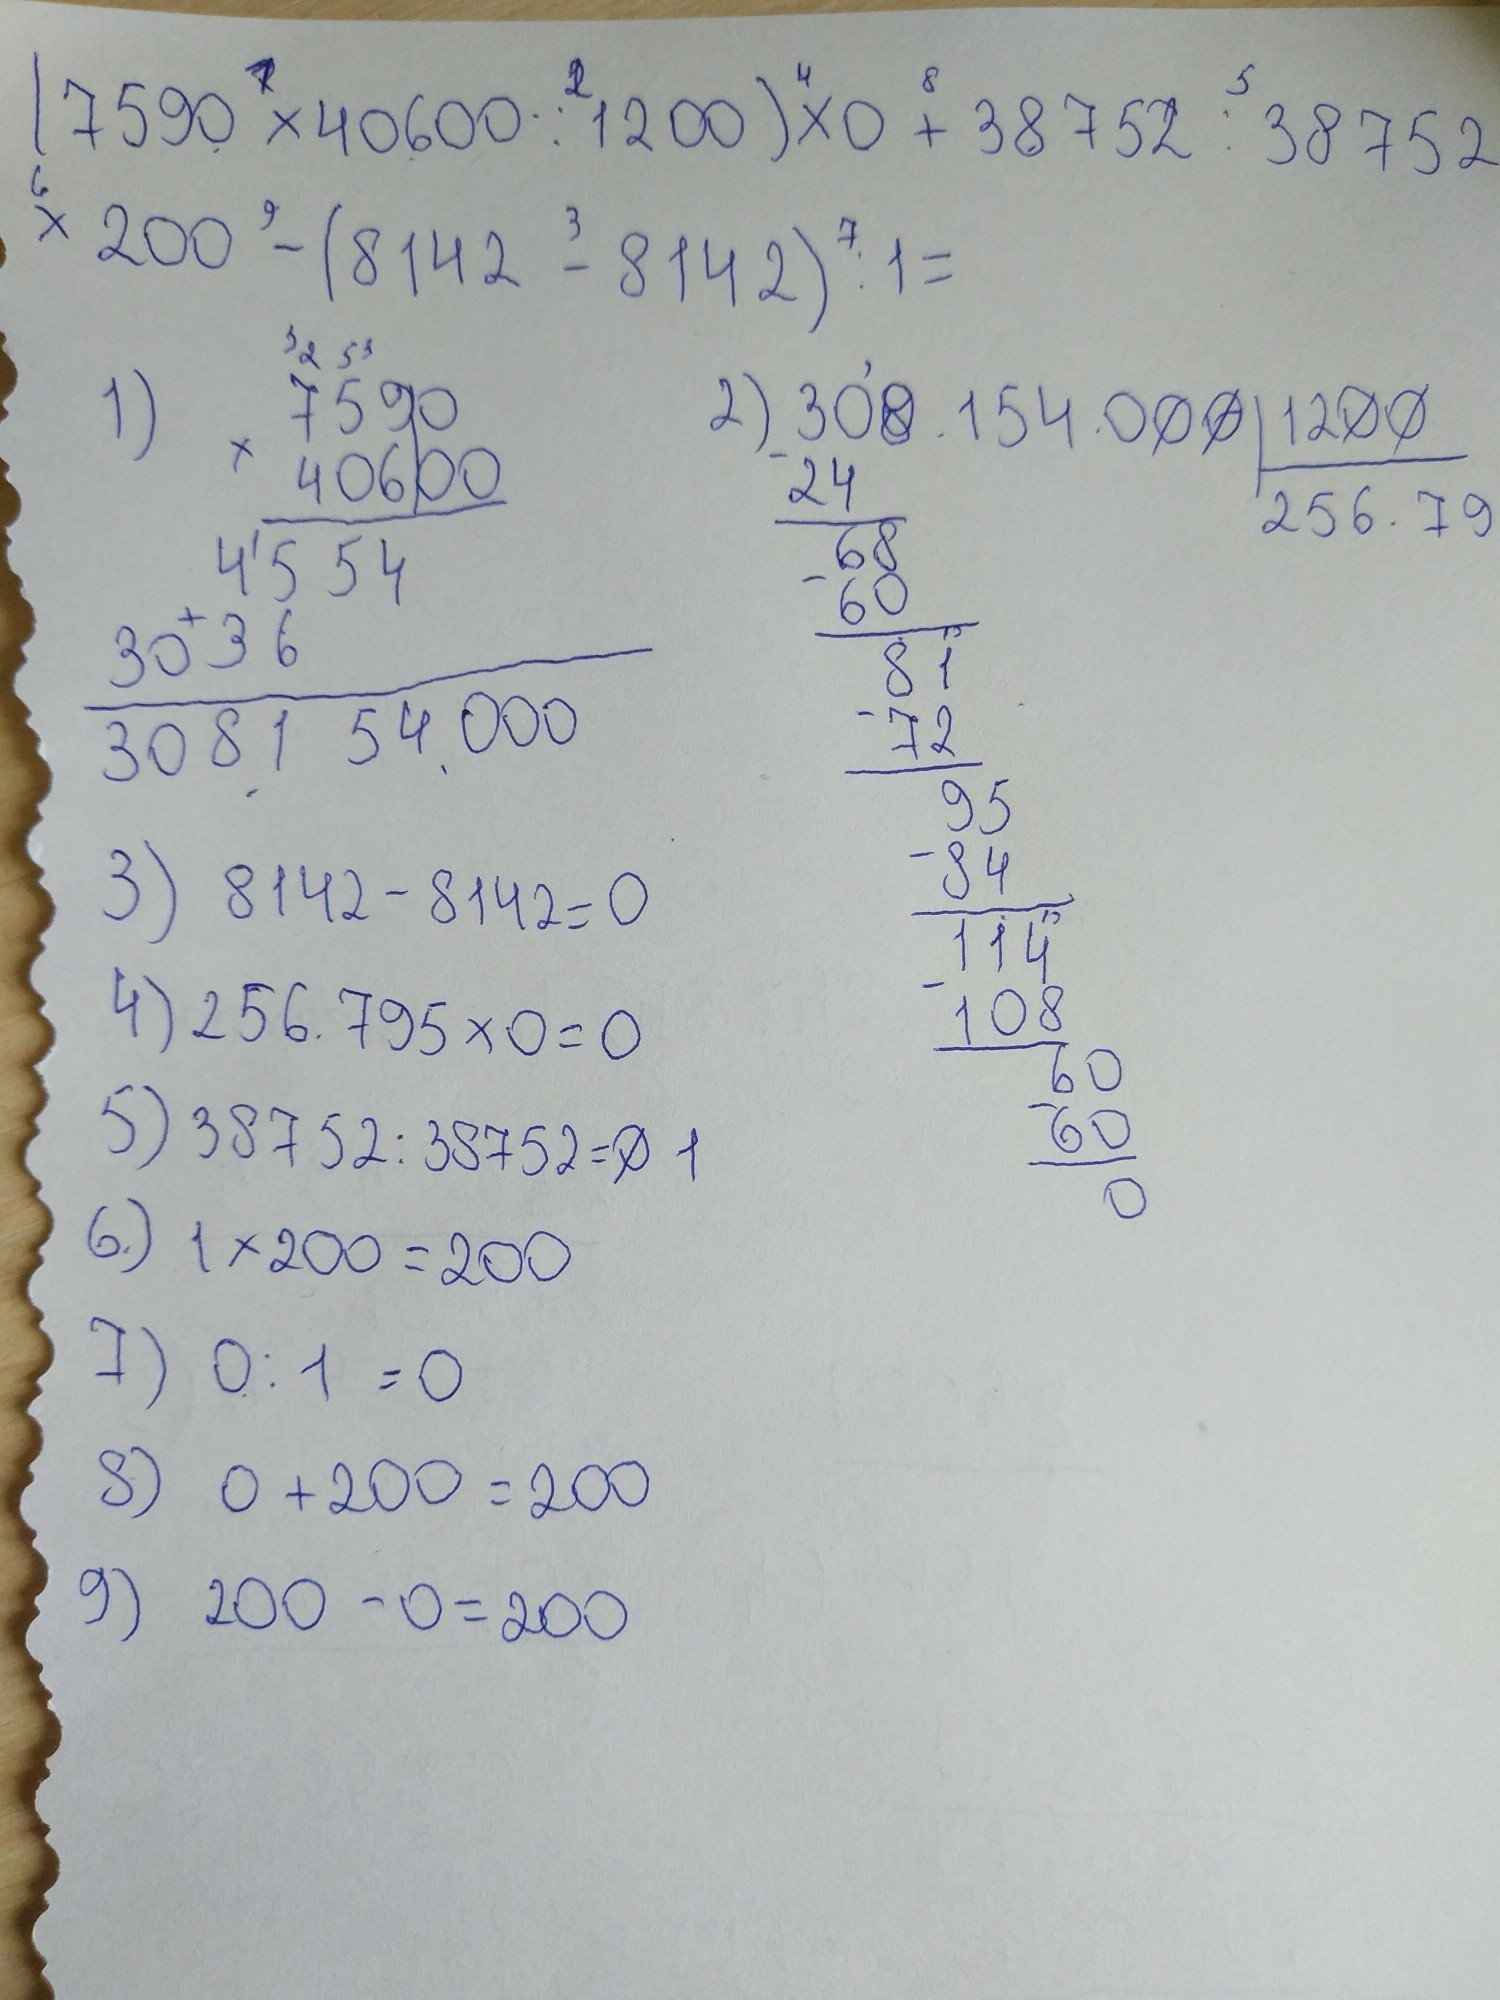 (7590 × 40600 : 1200) × 0 + 38752 : 38752
× 200 - (8142 - 8142) : 1 =
1) 7590
× 40600
4554
+ 3036
308154.000
2) 308.154.000 | 1200
- 24
256.79
- 68
60
81
- 72
95
- 84
114
- 108
60
- 60
0
3) 8142 - 8142 = 0
4) 256.795 × 0 = 0
5) 38752 : 38752 = 1
6) 1 × 200 = 200
7) 0 : 1 = 0
8) 0 + 200 = 200
9) 200 - 0 = 200